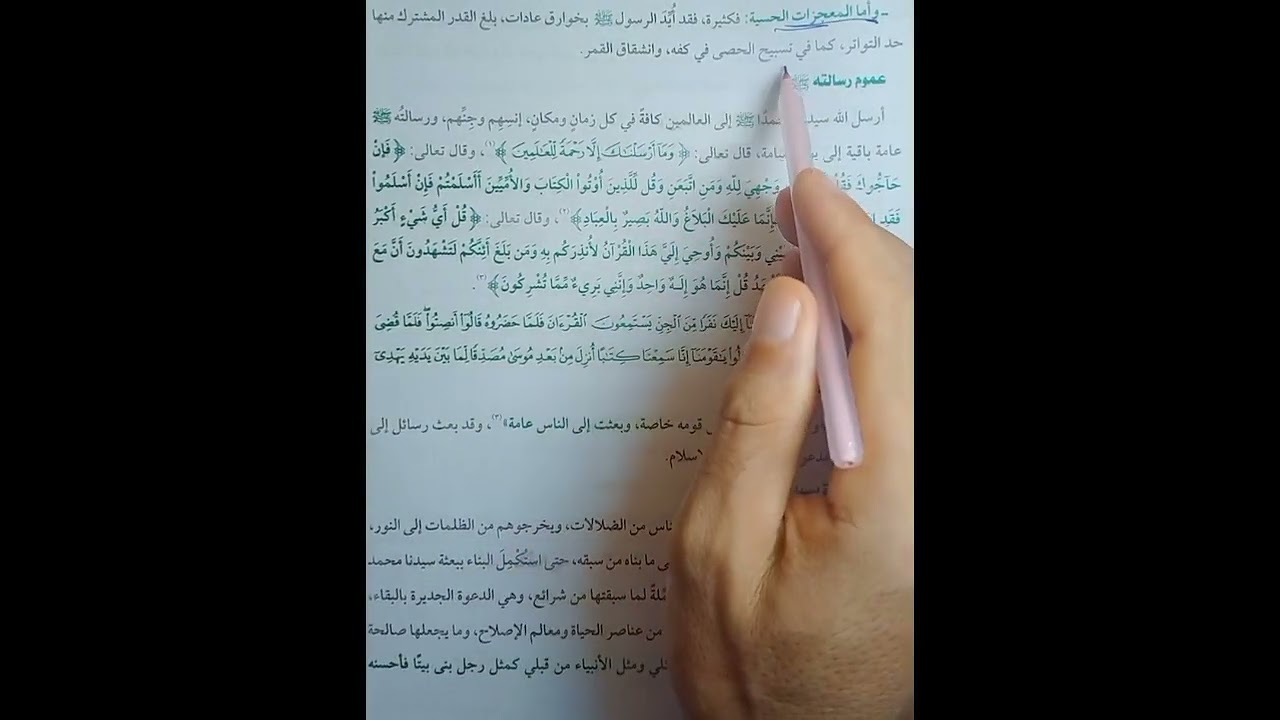 - وأما المعجزات الحسية: فكثيرة، فقد أُيِّدَ الرسول ﷺ بخوارق عادات، بلغ القدر المشترك منها
حد التواتر، كما في تسبيح الحصى في كفه، وانشقاق القمر.
عموم رسالته ﷺ
أرسل الله ﷺ إلى العالمين كافةً في كل زمانٍ ومكانٍ، إنسِهِم وجِنِّهم، ورسالتُه ﷺ
عامة باقية إلى قال تعالى: ﴿ وَمَآ أَرْسَلْنَٰكَ إِلَّا رَحْمَةً لِّلْعَٰلَمِينَ ﴾(١)، وقال تعالى: ﴿ فَإنْ
حَآجُّوكَ وَجْهِيَ لِلّهِ وَمَنِ اتَّبَعَنِ وَقُل لِّلَّذِينَ أُوْتُواْ الْكِتَابَ وَالأُمِّيِّينَ أَأَسْلَمْتُمْ فَإِنْ أَسْلَمُواْ
فَقَدِ فَإِنَّمَا عَلَيْكَ الْبَلاَغُ وَاللّهُ بَصِيرٌ بِالْعِبَادِ﴾(٢)، وقال تعالى: ﴿ قُلْ أَيُّ شَيْءٍ أَكْبَرُ
وَبَيْنَكُمْ وَأُوحِيَ إِلَيَّ هَذَا الْقُرْآنُ لأُنذِرَكُم بِهِ وَمَن بَلَغَ أَئِنَّكُمْ لَتَشْهَدُونَ أَنَّ مَعَ
قُلْ إِنَّمَا هُوَ إِلَـهٌ وَاحِدٌ وَإِنَّنِي بَرِيءٌ مِّمَّا تُشْرِكُونَ﴾(٣).
إِلَيْكَ نَفَرًا مِّنَ ٱلْجِنِّ يَسْتَمِعُونَ ٱلْقُرْءَانَ فَلَمَّا حَضَرُوهُ قَالُوٓا۟ أَنصِتُوا۟ۖ فَلَمَّا قُضِىَ
يَٰقَوْمَنَآ إِنَّا سَمِعْنَا كِتَٰبًا أُنزِلَ مِنۢ بَعْدِ مُوسَىٰ مُصَدِّقًا لِّمَا بَيْنَ يَدَيْهِ يَهْدِىٓ
قومه خاصة، وبعثت إلى الناس عامة»(٣)، وقد بعث رسائل إلى
من الضلالات، ويخرجوهم من الظلمات إلى النور،
ما بناه من سبقه، حتى استُكْمِلَ البناء ببعثة سيدنا محمد
لما سبقتها من شرائع، وهي الدعوة الجديرة بالبقاء،
من عناصر الحياة ومعالم الإصلاح، وما يجعلها صالحة
ومثل الأنبياء من قبلي كمثل رجل بنى بيتًا فأحسنه